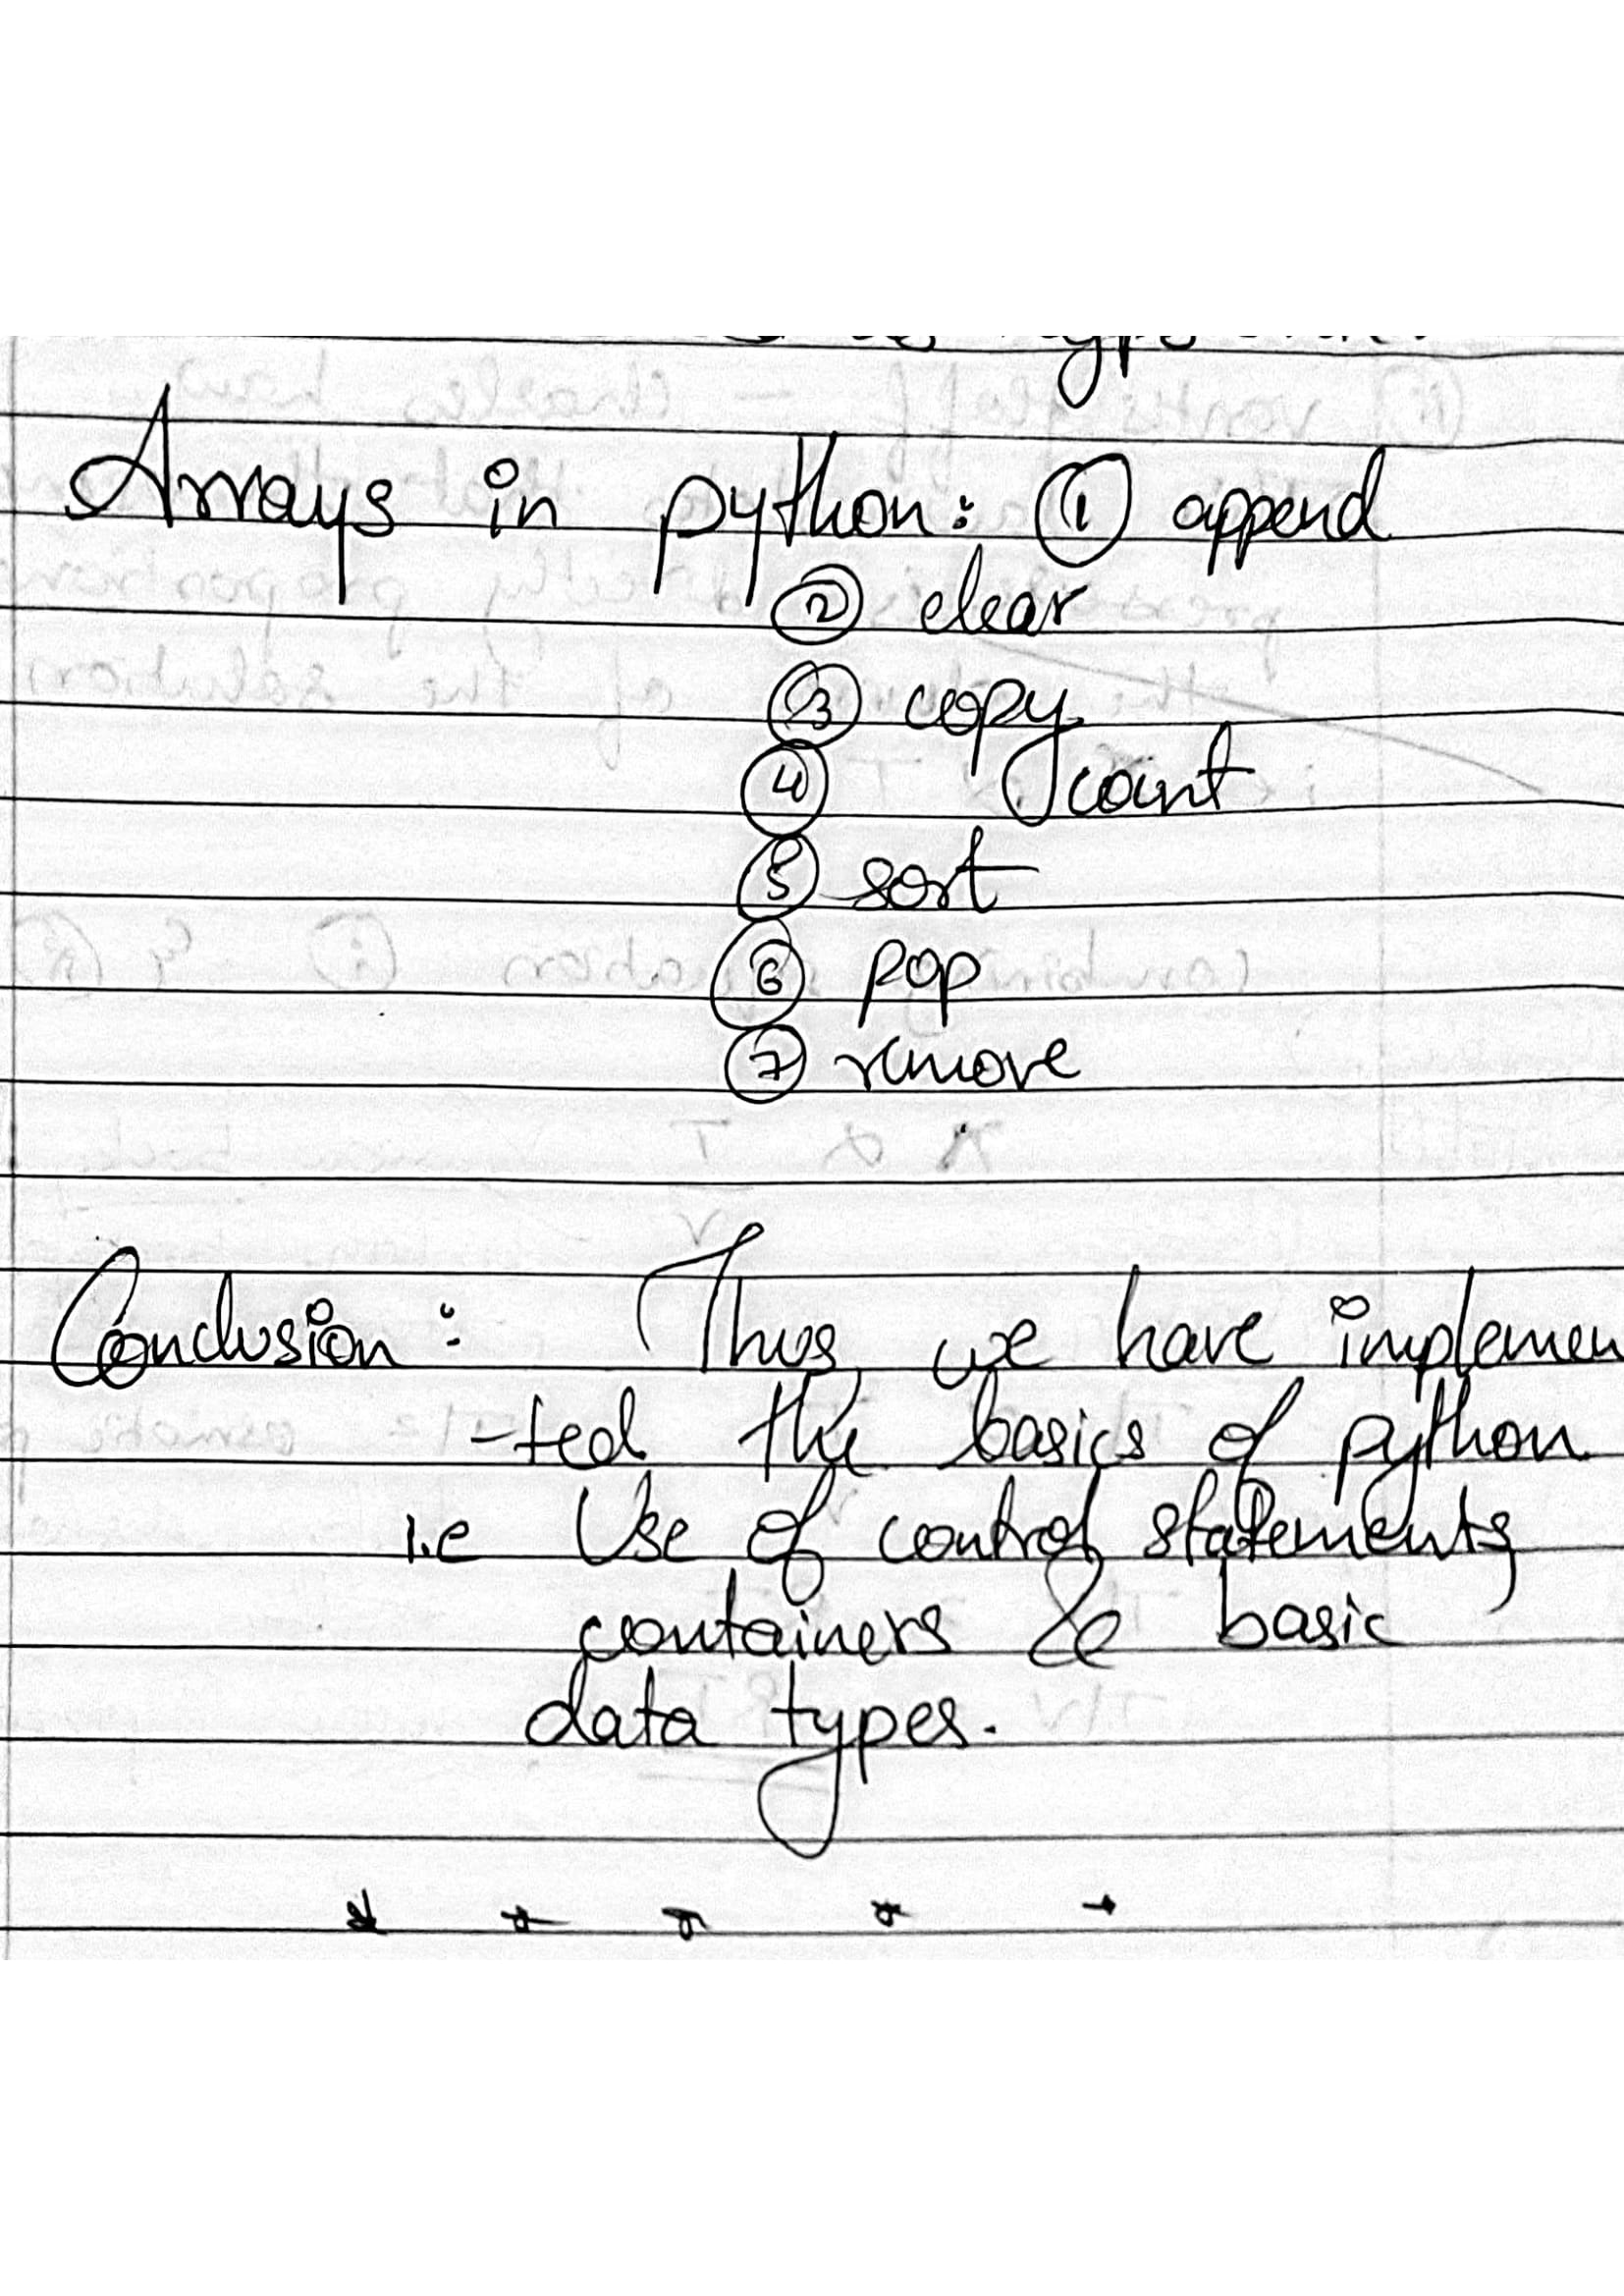 Arrays in python: ① append
② clear
③ copy
④ count
⑤ sort
⑥ pop
⑦ remove
Conclusion: Thus, we have implemen
-ted the basics of python
i.e Use of control statements,
containers & basic
data types.